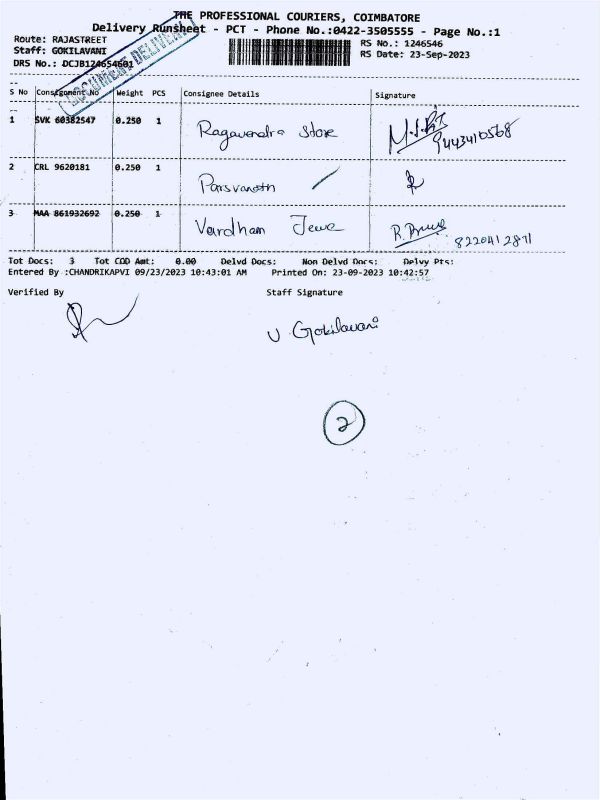 THE PROFESSIONAL COURIERS, COIMBATORE
Delivery Runsheet - PCT - Phone No.:0422-3505555 - Page No.:1
Route: RAJASTREET
RS No.: 1246546
Staff: GOKILAVANI
RS Date: 23-Sep-2023
DRS No.: DCJB124654601
DOCUMENT DELIVERY
S No Consignment No Weight PCS Consignee Details Signature
1 SVK 60382547 0.250 1 Ragavendra Store
9443410568
2 CRL 9620181 0.250 1 Parsvanath
3 MAA 861932692 0.250 1 Vardham Jewe
8220412871
Tot Docs: 3 Tot COD Amt: 0.00 Delvd Docs: Non Delvd Docs: Delvy Pts:
Entered By :CHANDRIKAPVI 09/23/2023 10:43:01 AM Printed On: 23-09-2023 10:42:57
Verified By Staff Signature
V Gokilavani
2